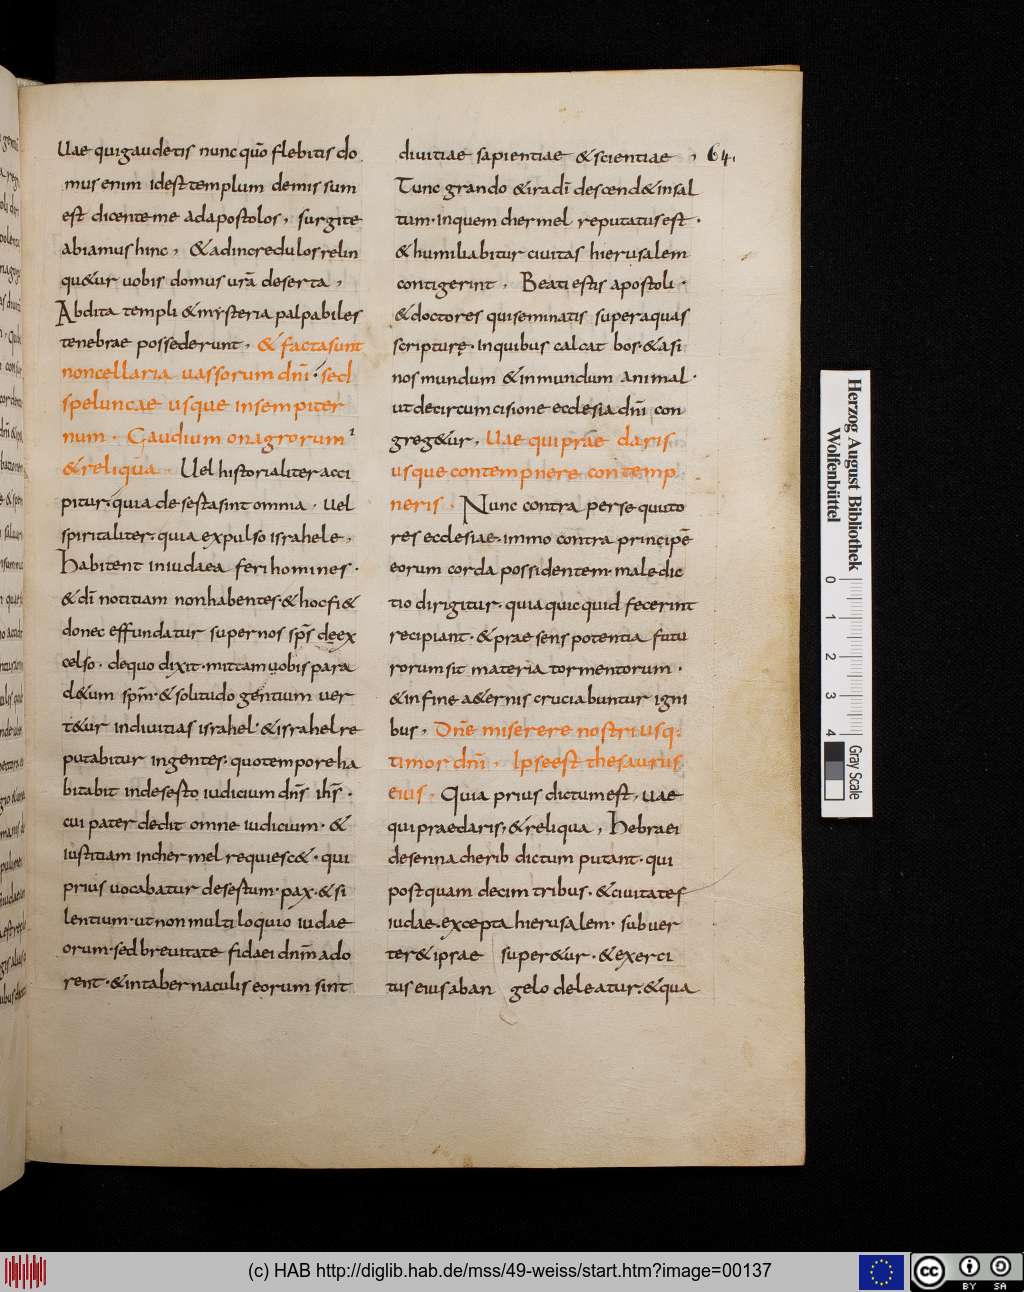 Uae qui gaudetis nunc quō flebitis do
mus enim idest templum demissum
est dicente me ad apostolos, surgite
abiamus hinc, & ad incredulos relin
qu&ur uobis domus urā deserta,
Abdita templi & mysteria palpabiles
tenebrae possederunt, & facta sunt
non cellaria uassorum dn̄i · sed
speluncae usque in sempiter
num · Gaudium onagrorum
& reliqua · Uel historialiter acci
pitur, quia de sesta sint omnia · uel
spiritaliter, quia expulso israhele,
habitent in iudaea feri homines ·
& dī notitiam non habentes & hoc fi&
donec effundatur super nos sp̄s de ex
celso · de quo dixit · mittam uobis para
cl&um sp̄m · & solitudo gentium uer
t&ur in diuitias israhel · & israhel re
putabitur in gentes · quo tempore ha
bitabit in desesto iudicium dn̄s ih̄s ·
cui pater dedit omne iudicium · &
iustitiam in chermel requiesc& · qui
prius uocabatur desestum · pax · & si
lentium · ut non multiloquio iudae
orum · sed breuitate fidaei dn̄m ado
rent · & in tabernaculis eorum sint
diuitiae sapientiae & scientiae , 64.
Tunc grando & ira dī descend& in sal
tum · in quem chermel reputatus est ·
& humiliabitur ciuitas hierusalem
contigerint · Beati estis apostoli ·
& doctores qui seminatis super aquas
scripturę · in quibus calcat bos · & asi
nos mundum & inmundum animal ·
ut de circumcisione ecclesia dn̄i con
greg&ur, Uae qui praedaris
usque contempnere contemp
neris · Nunc contra persequuto
res ecclesiae, immo contra principē
eorum corda possidentem · maledic
tio dirigitur · quia quicquid fecerint
recipiant · & praesens potentia futu
rorum sit materia tormentorum ·
& in fine a&ernis cruciabuntur igni
bus, Dn̄e miserere nostri usq:
timor dn̄i · Ipse est thesaurus
eius · Quia prius dictum est, uae
qui praedaris, & reliqua, Hebraei
de sennacherib dictum putant · qui
postquam decim tribus · & ciuitates
iudae · excepta hierusalem · subuer
ter& iprae super&ur · & exerci
tus eius ab angelo deleatur, & qua
Herzog August Bibliothek
Wolfenbüttel
0 1 2 3 4
Gray Scale
(c) HAB http://diglib.hab.de/mss/49-weiss/start.htm?image=00137
cc BY SA